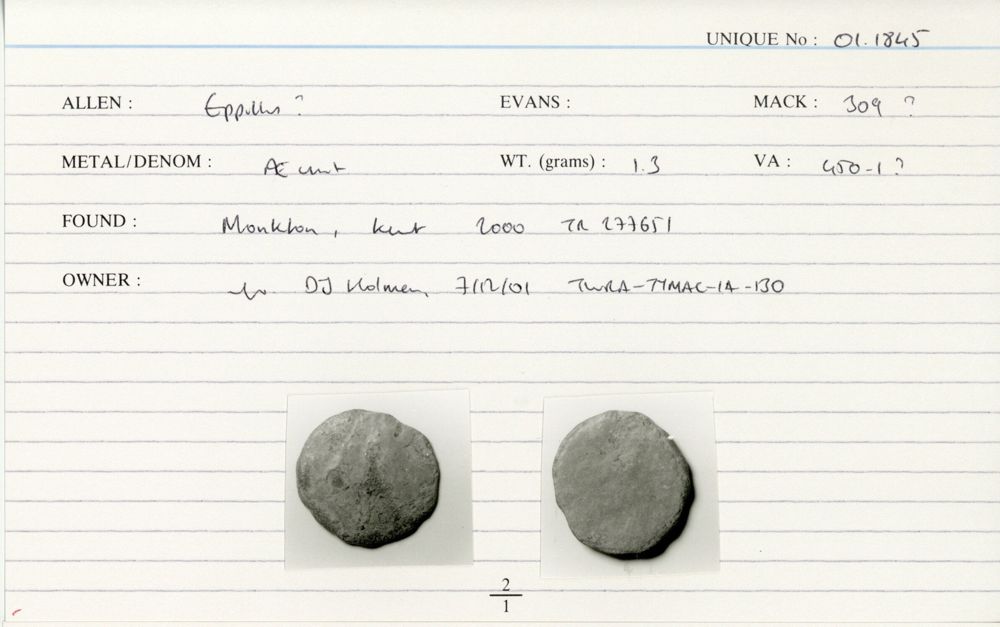 UNIQUE No : 01.1845
ALLEN : Eppillus ? EVANS : MACK : 309 ?
METAL/DENOM : Æ unit WT. (grams) : 1.3 VA : 450-1 ?
FOUND : Monkton, Kent 2000 TR 277651
OWNER : DJ Holman, 7/12/01 TWRA-TYMAC-IA-130
2
1